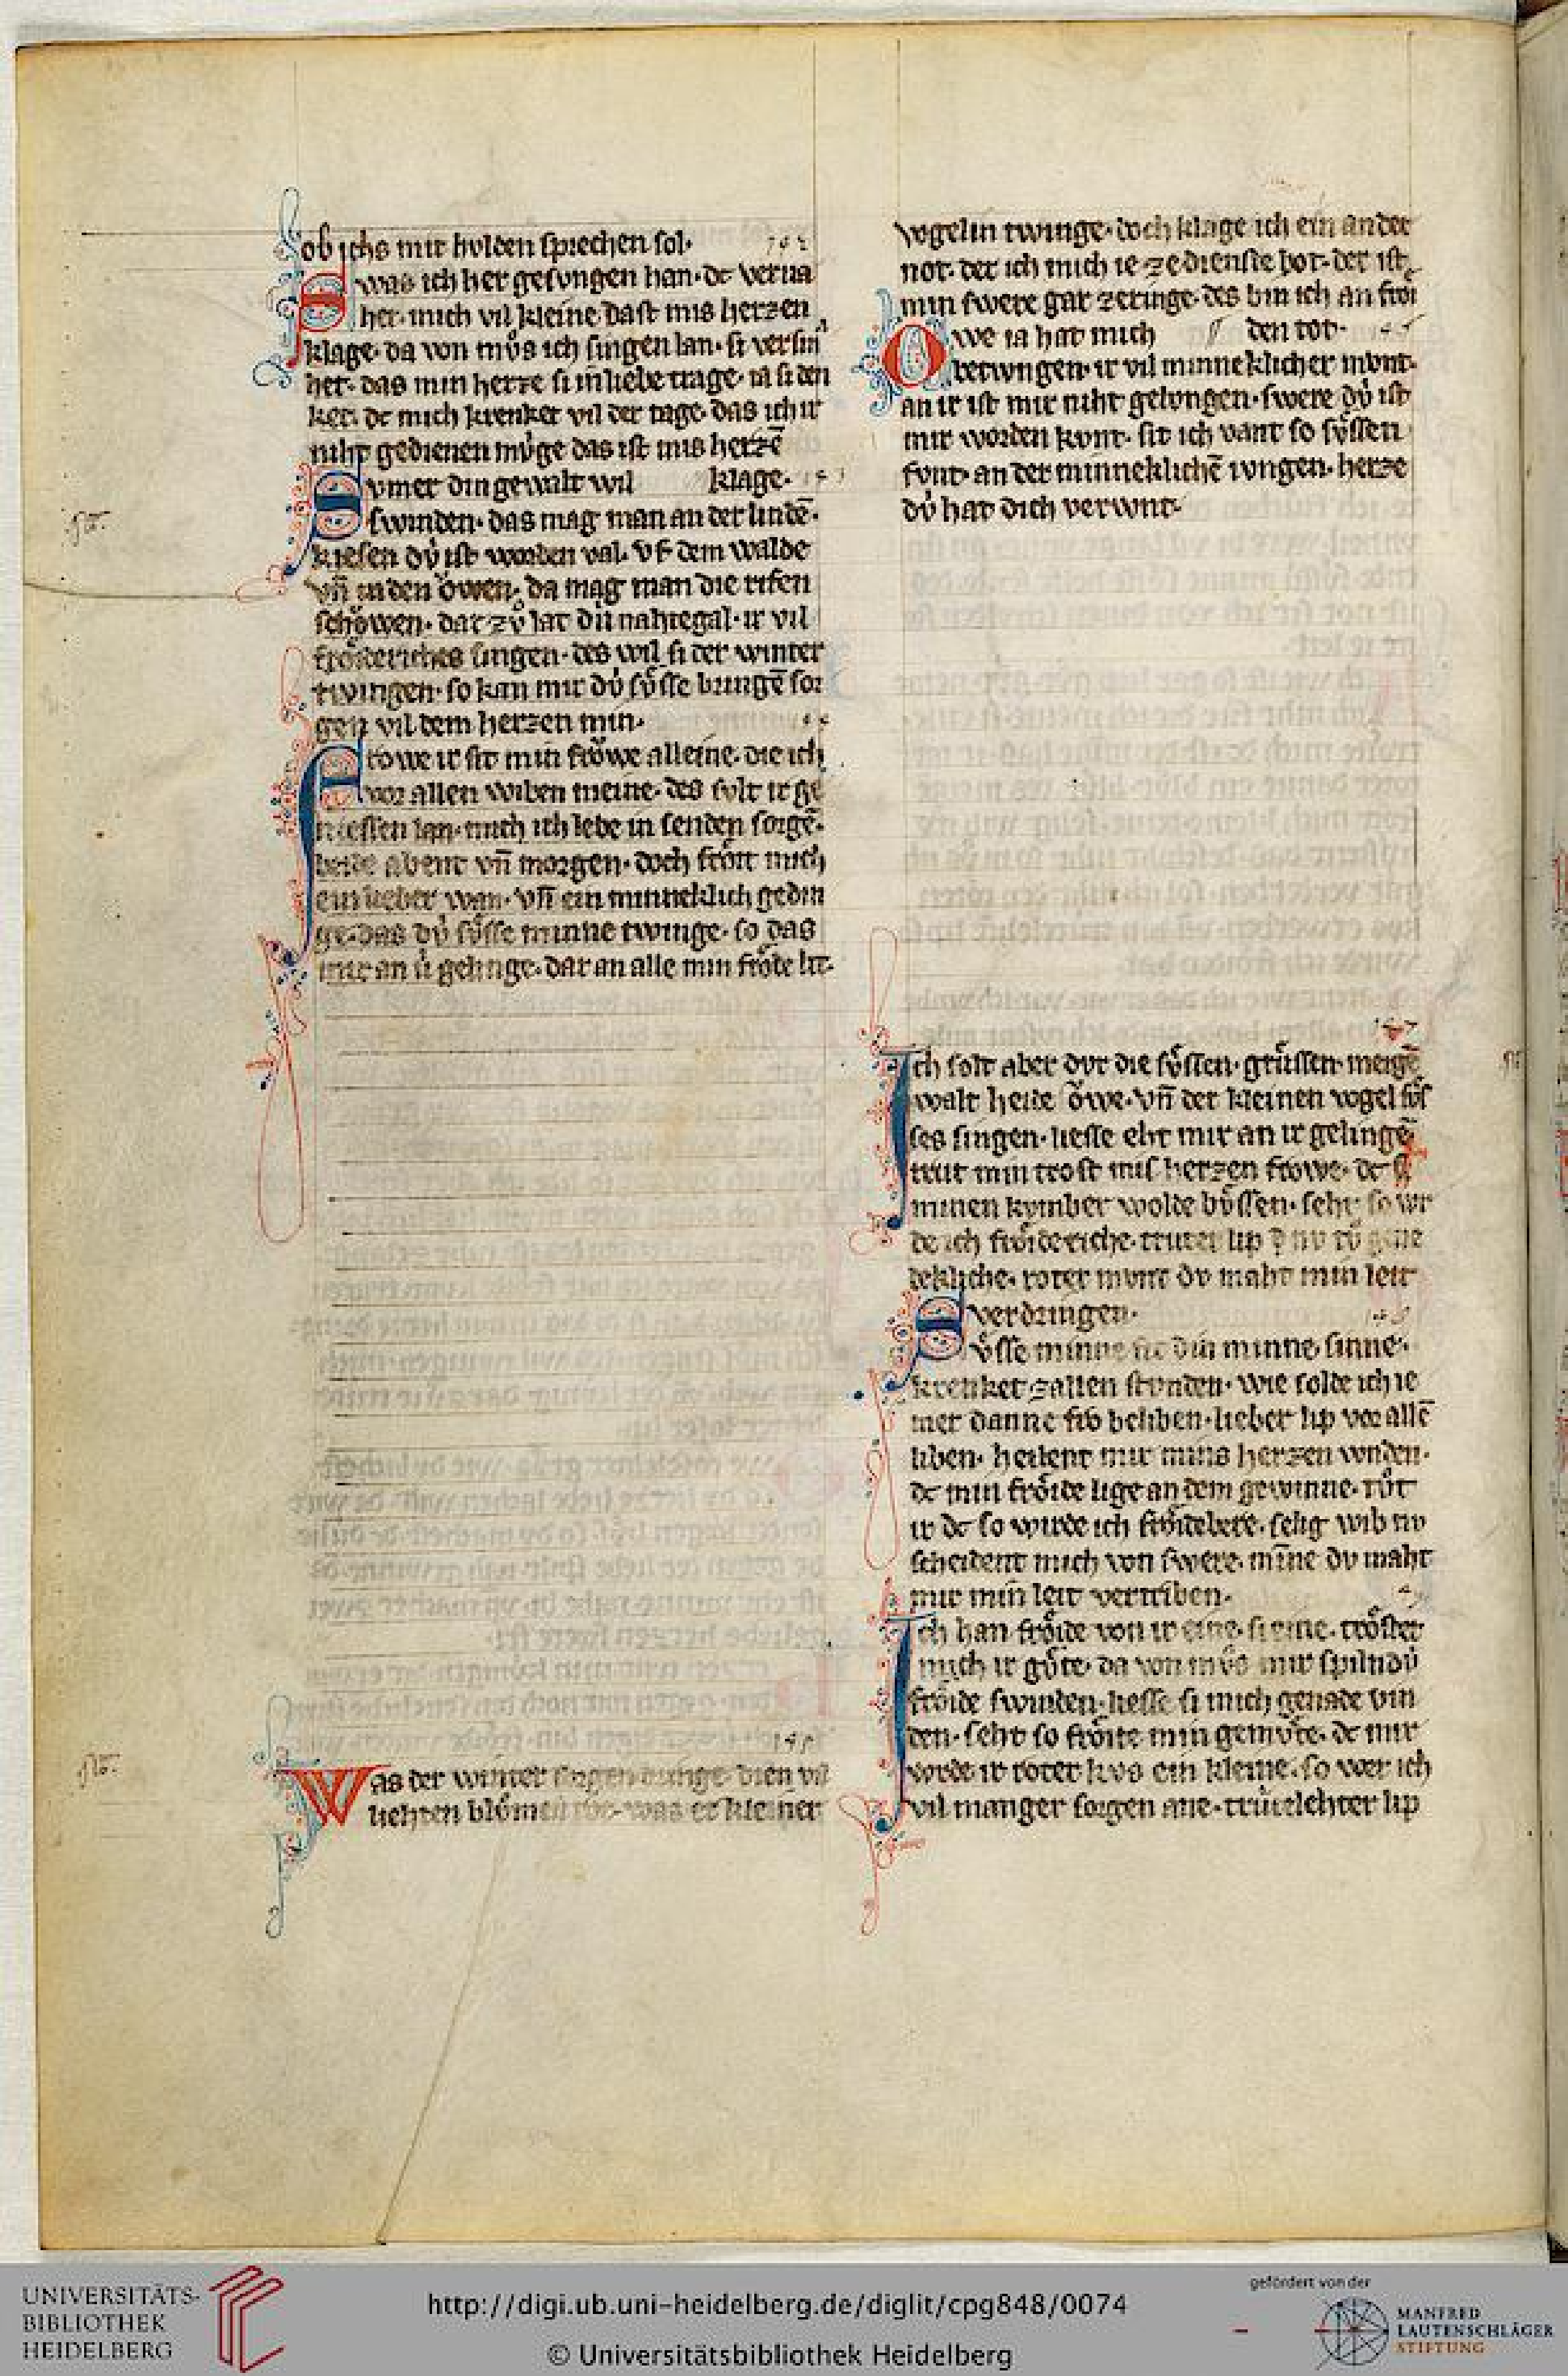 ob ichs mit hulden sprechen sol·
Swas ich her gesungen han· dc verva
het· mich vil kleine· dast mis herzen
klage· da von mvͦs ich singen lan· si versin
het· das min herze si in liebe trage· ia si den
ket· dc mich krenket vil der tage· das ich ir
niht gedienen mvͤge das ist mis herzē
Svmer din gewalt wil klage·
swinden· das mag man an der lindē·
kiesen dv́ ist worden val· vf dem walde
vn̄ in den oͮwen· da mag man die rifen
schoͮwen· dar zvͦ lat dú nahtegal· ir vil
froͤideriches singen· des wil si der winter
twingen· so kan mir dv́ svͤsse bringē sor
gen vil dem herzen min·
Frowe ir sit min froͮwe alleine· die ich
vor allen wiben meine· des svlt ir ge
niessen lan· mich ich lebe in senden sorgē·
beide abent vn̄ morgen· doch froͤit mich
ein lieber wan· vn̄ ein minneklich gedin
ge· das dv́ svͤsse minne twinge· so das
mir an ú gelinge· dar an alle min froͤide lit·
145
Was der winter sorgen dinge· dien vil
liehten blvͦmen tvͦ· was er kleiner
vogelin twinge· doch klage ich ein ander
not· der ich mich ie ze dienste bot· der ist
min swere gar ze ringe· des bin ich an froͤi
Owe ia hat mich den tot·
betwngen· ir vil minneklicher mvnt·
an ir ist mir niht gelvngen· swere dv́ ist
mir worden kvnt· sit ich vant so svͤssen
fvnt· an der minneklichē ivngen· herze
dv́ hat dich verwnt·
147
Ich solt aber dvr die svͤssen· grvͤssen· meigē
walt heide oͮwe· vn̄ der kleinen vogel svͤs
ses singen· liesse eht mir an ir gelingē
trut min trost mis herzen frowe· dc si
minen kvmber wolde bvͤssen· seht so wr
de ich froͤideriche· truter lip nv tvͦ gene
dekliche· roter mvnt dv maht min leit
verdringen·
Svͤsse minne sit din minne· sinne·
krenket zallen stvnden· wie solde ich ie
mer danne fro beliben· lieber lip vor allē
liben· heilent mir mins herzen wnden·
dc min froͤide lige an dem gewinne· tvͦt
ir dc so wirde ich froͤidebere· selig wib nv
scheident mich von swere· mīne dv maht
mir min leit vertriben·
Ich han froͤide von ir eine· si eine· troͤstet
mich ir gvͤte· da von mvͦs mir spilndv́
froͤide swinden· liesse si mich genade vin
den· seht so froͤite min gemvͤte· dc mir
wrde ir roter kvs ein kleine· so wer ich
vil manger sorgen ane· trútelehter lip
UNIVERSITÄTS-
BIBLIOTHEK
HEIDELBERG
http://digi.ub.uni-heidelberg.de/diglit/cpg848/0074
© Universitätsbibliothek Heidelberg
gefördert von der
MANFRED
LAUTENSCHLÄGER
STIFTUNG